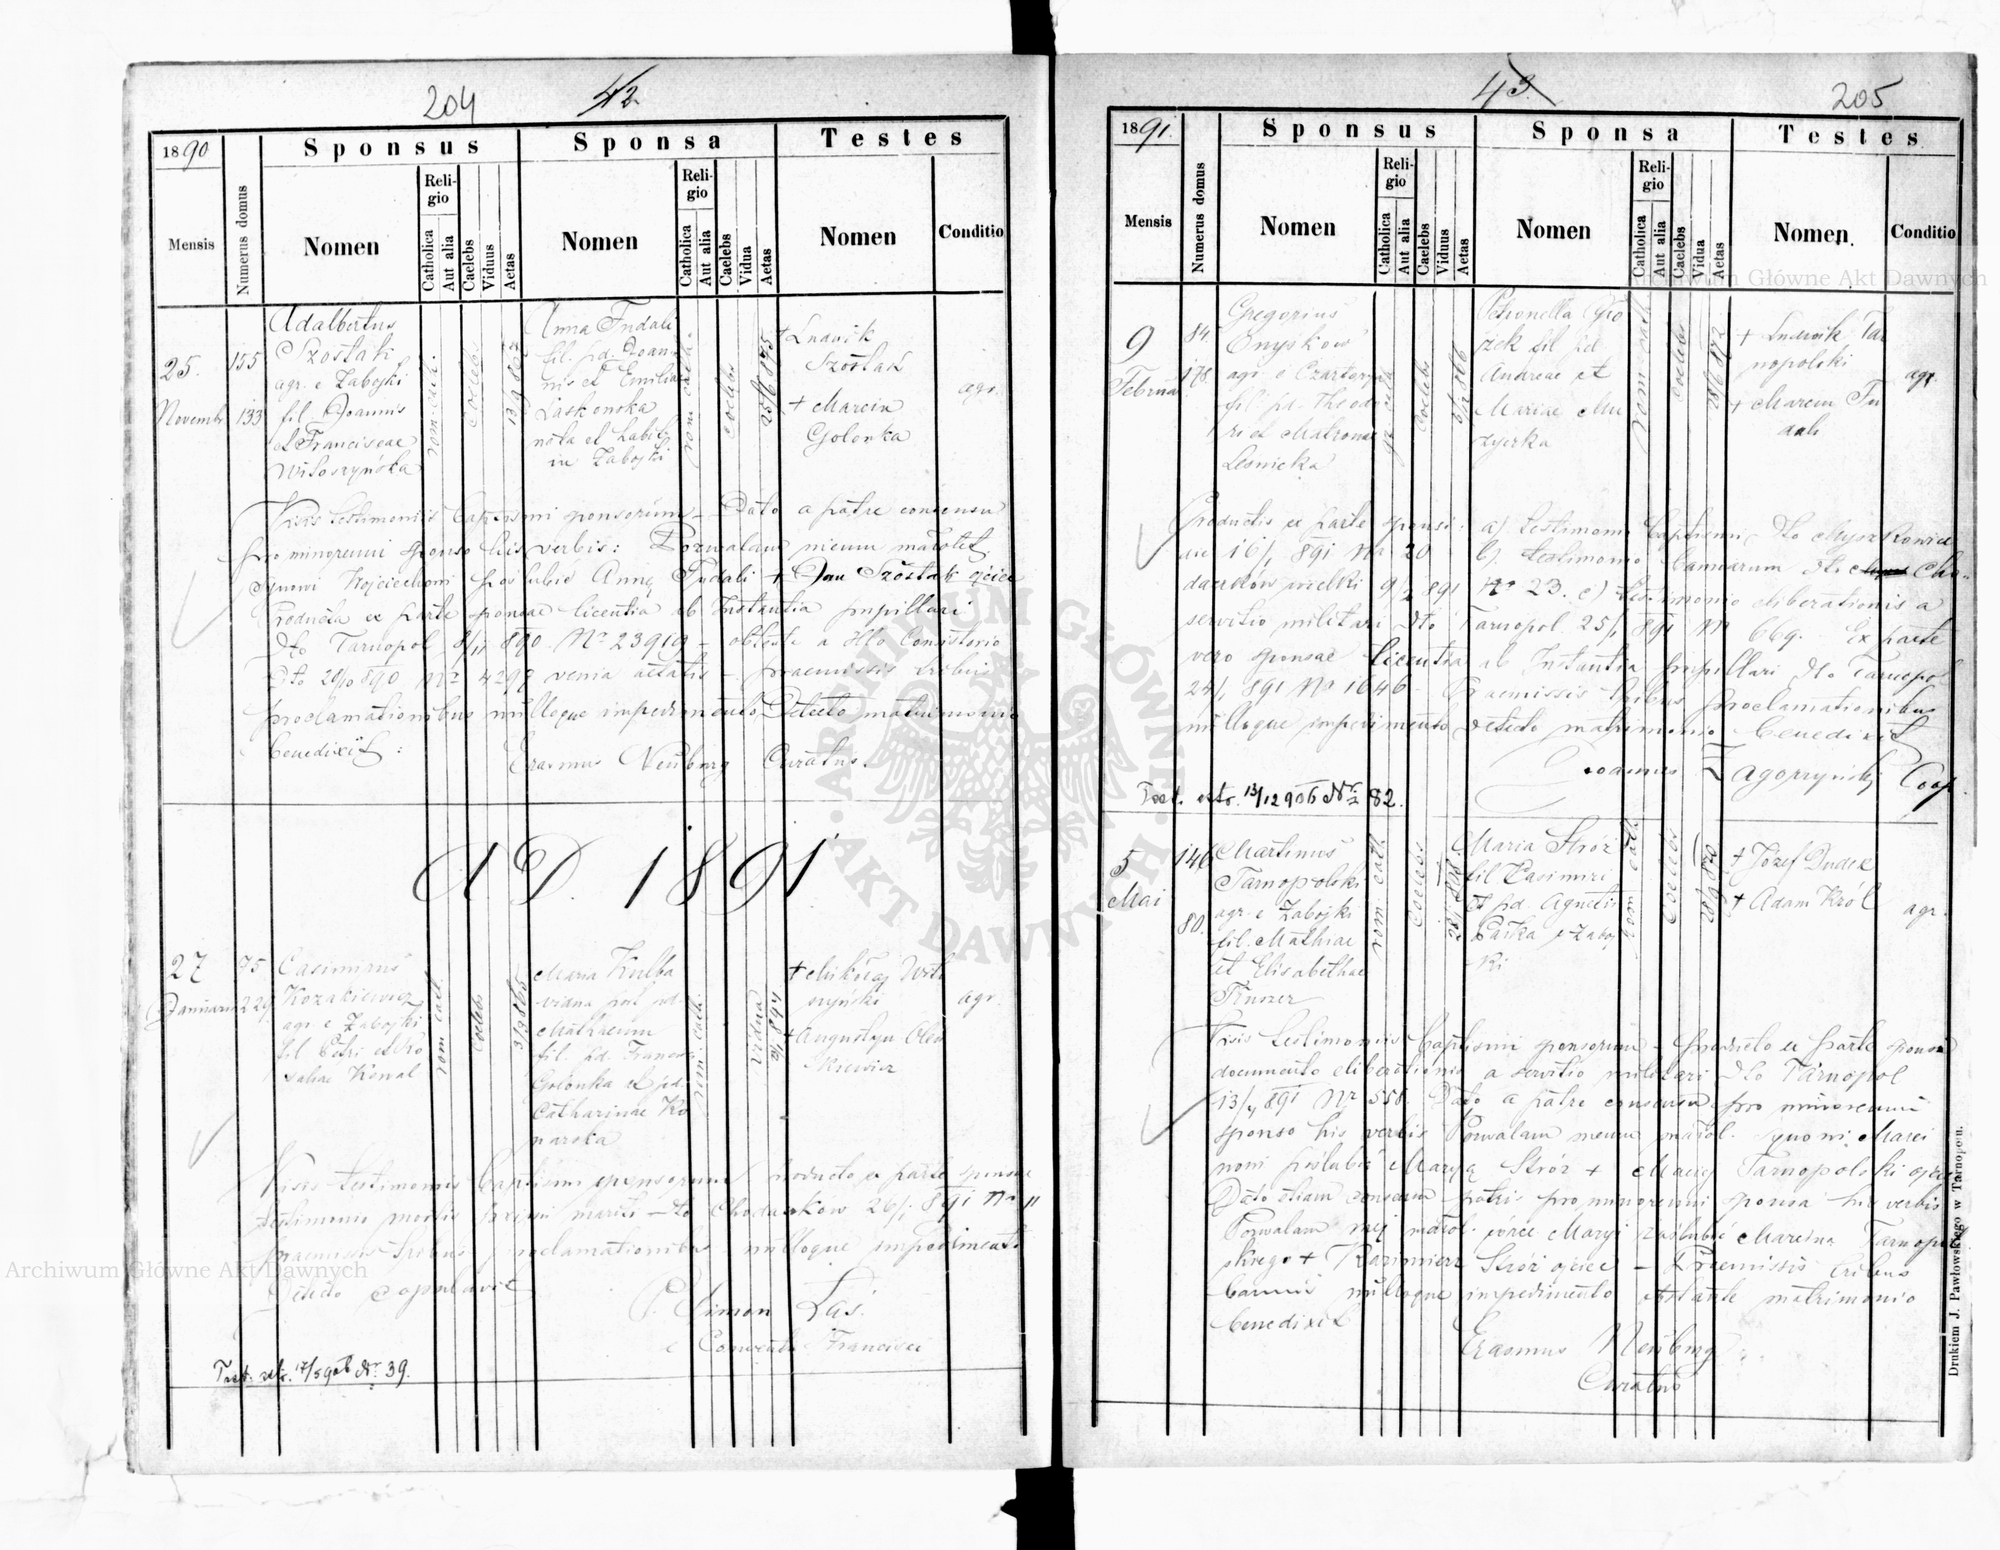 204 42
1890 Sponsus Sponsa Testes
Mensis Numerus domus Nomen Religio Catholica Aut alia Caelebs Viduus Aetas Nomen Religio Catholica Aut alia Caelebs Vidua Aetas Nomen Conditio
25. Novembr 155 133
Adalbertus
Szostak
agr. e Zabojki
fil. Joannis
et Franciscae
Wiłoszyńska
rom. cath. coelebs
Anna Fudali
fil. pd. Joan
nis et Emiliae
Laskowska
nata et habit.
in Zabojki
rom cath. coelebs 25/6 875
+ Ludwik
Szostak
+ Marcin
Golonka
agr.
Visis testimoniis baptismi sponsorum – Dato a patre consensu
pro minorenni sponso his verbis: Pozwalam memu małolet
synowi Wojciechowi poślubić Annę Fudali + Jan Szostak ojciec
Producta ex parte sponsae licentia ab Instantia pupillari
dto Tarnopol 8/11 890 Nr 23919 – obtente a Consistorio
Dto 29/10 890 Nr 4299 venia aetatis – praemissis tribus
proclamationibus nulloque impedimento Detecto matrimonio
benedixit: Erasmus Neuburg Curatus.
AD. 1891
27 Januarii 75 229
Casimirus
Kozakiewicz
agr. e Zabojki
fil Petri et Ro
saliae Kowal
rom cath. coelebs 3/3 865
Maria Kulba
vidua post pd.
Mathaeum
fil. pd. Francisci
Golonka et pd.
Catharinae Ko
narska
rom. cath. vidua
+ Mikołaj Wiło
szyński
+ Augustyn Olen
kiewicz
agr.
Visis testimoniis baptismi sponsorum producto ex parte sponsae
testimonio mortis primi mariti – dto Chodaczków 26/1 891 Nr 11
praemissis tribus proclamationibus nulloque impedimento
Detecto copulavit P. Simon Łaś.
e Conventu Francisci
Test. extr. 17/5 906 Nr. 39.
43 205
1891. Sponsus Sponsa Testes
Mensis Numerus domus Nomen Religio Catholica Aut alia Caelebs Viduus Aetas Nomen Religio Catholica Aut alia Caelebs Vidua Aetas Nomen. Conditio
9 Februar 84. 178
Gregorius
Onyskow
agr. e Czartorya
fil. pd. Theodo
ri et Matronae
Lesnicka
gr cath coelebs
Petronella
fil pd
Andreae et
Mariae Mu
zyczka
rom cath coelebs
+ Ludwik Tar
nopolski
+ Marcin Fu
dali
agr.
Productis ex parte sponsi: a) testimonio baptismi dto Myszkowice
die 16/1 891 Nr 20 b) testimonio bannorum dto Cho-
daczków wielki 9/2 891 Nr 23. c) testimonio eliberationis a
servitio militari Dto Tarnopol 25/1 891 Nr 669. Ex parte
vero sponsae licentia ab Instantia pupillari dto Tarnopol
24/1 891 Nr 1646 – Praemissis tribus proclamationibus
nulloque impedimento detecto matrimonio benedixit
Joannes Zagorzyński Coop.
Test. extr. 13/12 906 Nr 82.
5 Mai 146 80.
Martinus
Tarnopolski
agr. e Zabojki
fil. Mathiae
et Elisabethae
rom. cath coelebs
Maria Stróż
fil Casimiri
et pd. Agnetis
Pařka e Zaboj
ki
rom cath coelebs 28/9 870
+ Józef Dudek
+ Adam Król
agr.
Visis testimoniis baptismi sponsorum – producto ex parte sponsi
documento eliberationis a servitio militari Dto Tarnopol
13/4 891 Nr 558. Dato a patre consensu pro minorenni
sponso his verbis Pozwalam memu małol. synowi Marci
nowi poślubić Maryą Stróż + Maciej Tarnopolski ojciec
Dato etiam consensu patris pro minorenni sponsa his verbis
Pozwalam mej małol. córce Maryi zaślubić Marcina Tarnopol
skiego + Kazimierz Stróż ojciec – Praemissis tribus
bannis nulloque impedimento obstante matrimonio
benedixit
Erasmus Neuburg
Curatus
Drukiem J. Pawłowskiego w Tarnopolu.
Archiwum Główne Akt Dawnych
Archiwum Główne Akt Dawnych
ARCHIWUM GŁÓWNE · AKT DAWNYCH ·